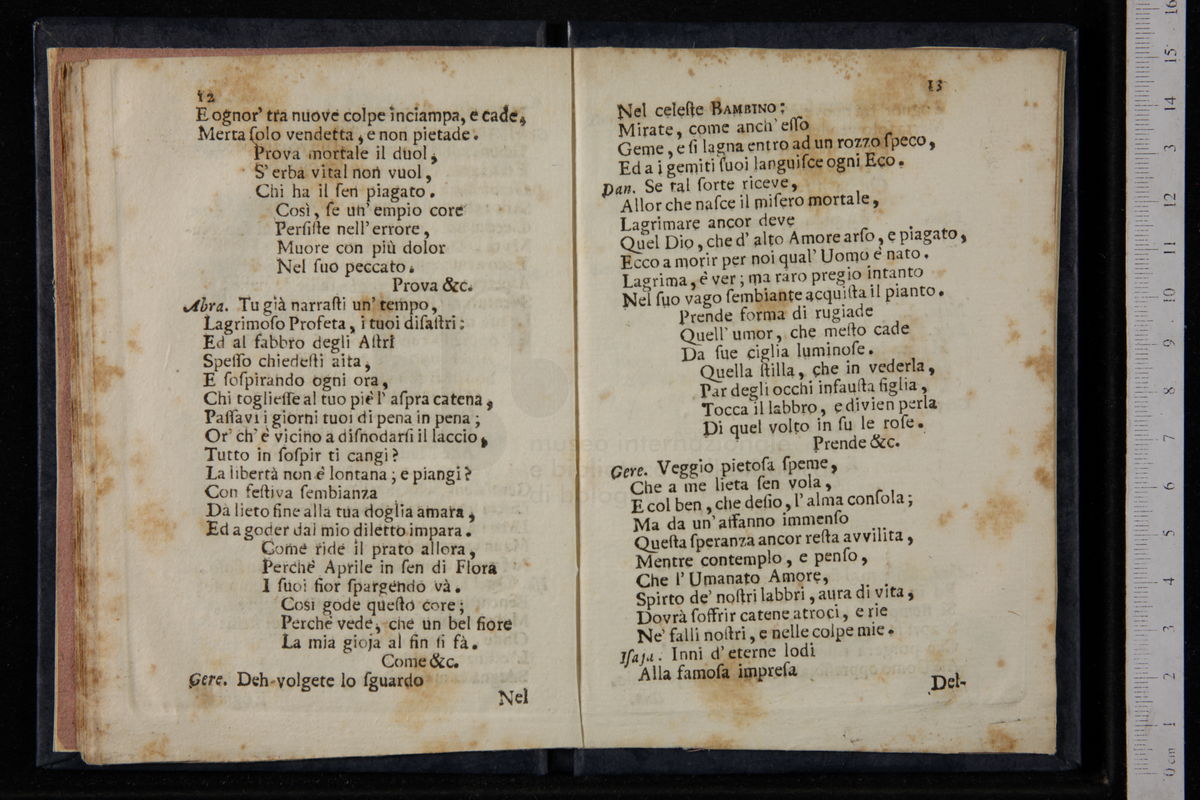 12
E ognor' tra nuove colpe inciampa, e cade,
Merta ſolo vendetta, e non pietade.
Prova mortale il duol,
S' erba vital non vuol,
Chi ha il ſen piagato.
Così, ſe un' empio core
Perſiſte nell' errore,
Muore con più dolor
Nel ſuo peccato.
Prova &c.
Abra. Tu già narraſti un' tempo,
Lagrimoſo Profeta, i tuoi diſaſtri:
Ed al fabbro degli Aſtri
Speſſo chiedeſti aita,
E ſoſpirando ogni ora,
Chi toglieſſe al tuo piè l' aſpra catena,
Paſſavi i giorni tuoi di pena in pena;
Or' ch' è vicino a diſnodarſi il laccio,
Tutto in ſoſpir ti cangi?
La libertà non è lontana; e piangi?
Con feſtiva ſembianza
Dà lieto fine alla tua doglia amara,
Ed a goder dal mio diletto impara.
Come ride il prato allora,
Perchè Aprile in ſen di Flora
I ſuoi fior ſpargendo và.
Così gode queſto core;
Perchè vede, che un bel fiore
La mia gioja al fin ſi fà.
Come &c.
Gere. Deh volgete lo ſguardo
Nel
13
Nel celeſte BAMBINO:
Mirate, come anch' eſſo
Geme, e ſi lagna entro ad un rozzo ſpeco,
Ed a i gemiti ſuoi languiſce ogni Eco.
Dan. Se tal ſorte riceve,
Allor che naſce il miſero mortale,
Lagrimare ancor deve
Quel Dio, che d' alto Amore arſo, e piagato,
Ecco a morir per noi qual' Uomo è nato.
Lagrima, è ver; ma raro pregio intanto
Nel ſuo vago ſembiante acquiſta il pianto.
Prende forma di rugiade
Quell' umor, che meſto cade
Da ſue ciglia luminoſe.
Quella ſtilla, che in vederla,
Par degli occhi infauſta figlia,
Tocca il labbro, e divien perla
Di quel volto in ſu le roſe.
Prende &c.
Gere. Veggio pietoſa ſpeme,
Che a me lieta ſen vola,
E col ben, che deſio, l' alma conſola;
Ma da un' affanno immenſo
Queſta ſperanza ancor reſta avvilita,
Mentre contemplo, e penſo,
Che l' Umanato Amore,
Spirto de' noſtri labbri, aura di vita,
Dovrà ſoffrir catene atroci, e rie
Ne' falli noſtri, e nelle colpe mie.
Iſaja. Inni d' eterne lodi
Alla famoſa impreſa
Del-
museo internazionale
e biblio
di bolo
0 cm 1 2 3 4 5 6 7 8 9 10 11 12 3 14 15 16